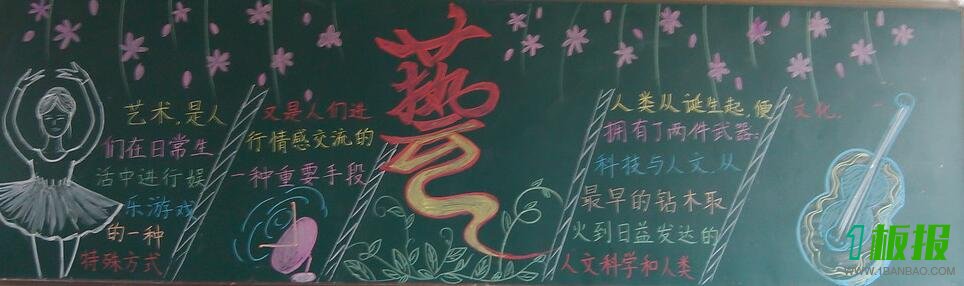 艺术,是人
们在日常生
活中进行娱
乐游戏
的一种
特殊方式
又是人们进
行情感交流的
一种重要手段
藝
人类从诞生起,便
拥有了两件武器:
科技与人文,从
最早的钻木取
火到日益发达的
人文科学和人类
文化.
1板报
WWW.1BANBAO.COM